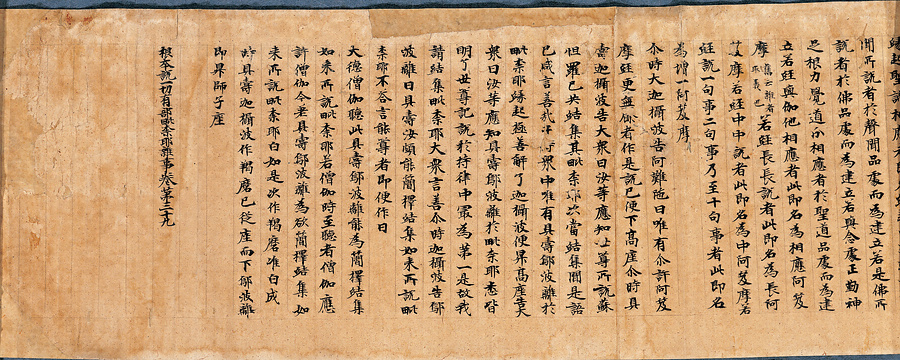 緣起聖諦相應
聞所說者於聲聞品處而為建立若是佛所
說者於佛品處而為建立若與念處正勤神
足根力覺道分相應者於聖道品處而為建
立若經與伽他相應者此即名為相應阿笈
摩 舊云雜者取義也 若經長長說者此即名為長阿
笈摩若經中中說者此即名為中阿笈摩若
經說一句事二句事乃至十句事者此即名
為增一阿笈摩
尒時大迦攝波告阿難陁曰唯有尒許阿笈
摩經更無餘者作是說已便下高座尒時具
壽迦攝波告大衆曰汝等應知世尊所說蘇
怛羅已共結集其毗柰耶次當結集聞是語
已咸言善哉於衆中唯有具壽鄔波離於
毗柰耶緣起極善解了迦攝波便昇高座告大
衆曰汝等應知具壽鄔波離於毗柰耶悉皆
明了世尊記說於持律中最為第一是故我
請結集毗柰耶大衆言善尒時迦攝波告鄔
波離曰具壽汝頗能簡擇結集如來所說毗
柰耶不荅言能尊者即便作白
大德僧伽聽此具壽鄔波離能為簡擇結集
如來所說毗柰耶若僧伽時至聽者僧伽應
許僧伽今差具壽鄔波離為欲簡擇結集如
來所說毗柰耶白如是次作羯磨准白成
時具壽迦攝波作羯磨已從座而下鄔波離
即昇師子座
根本說一切有部毗柰耶雜事卷第三十九